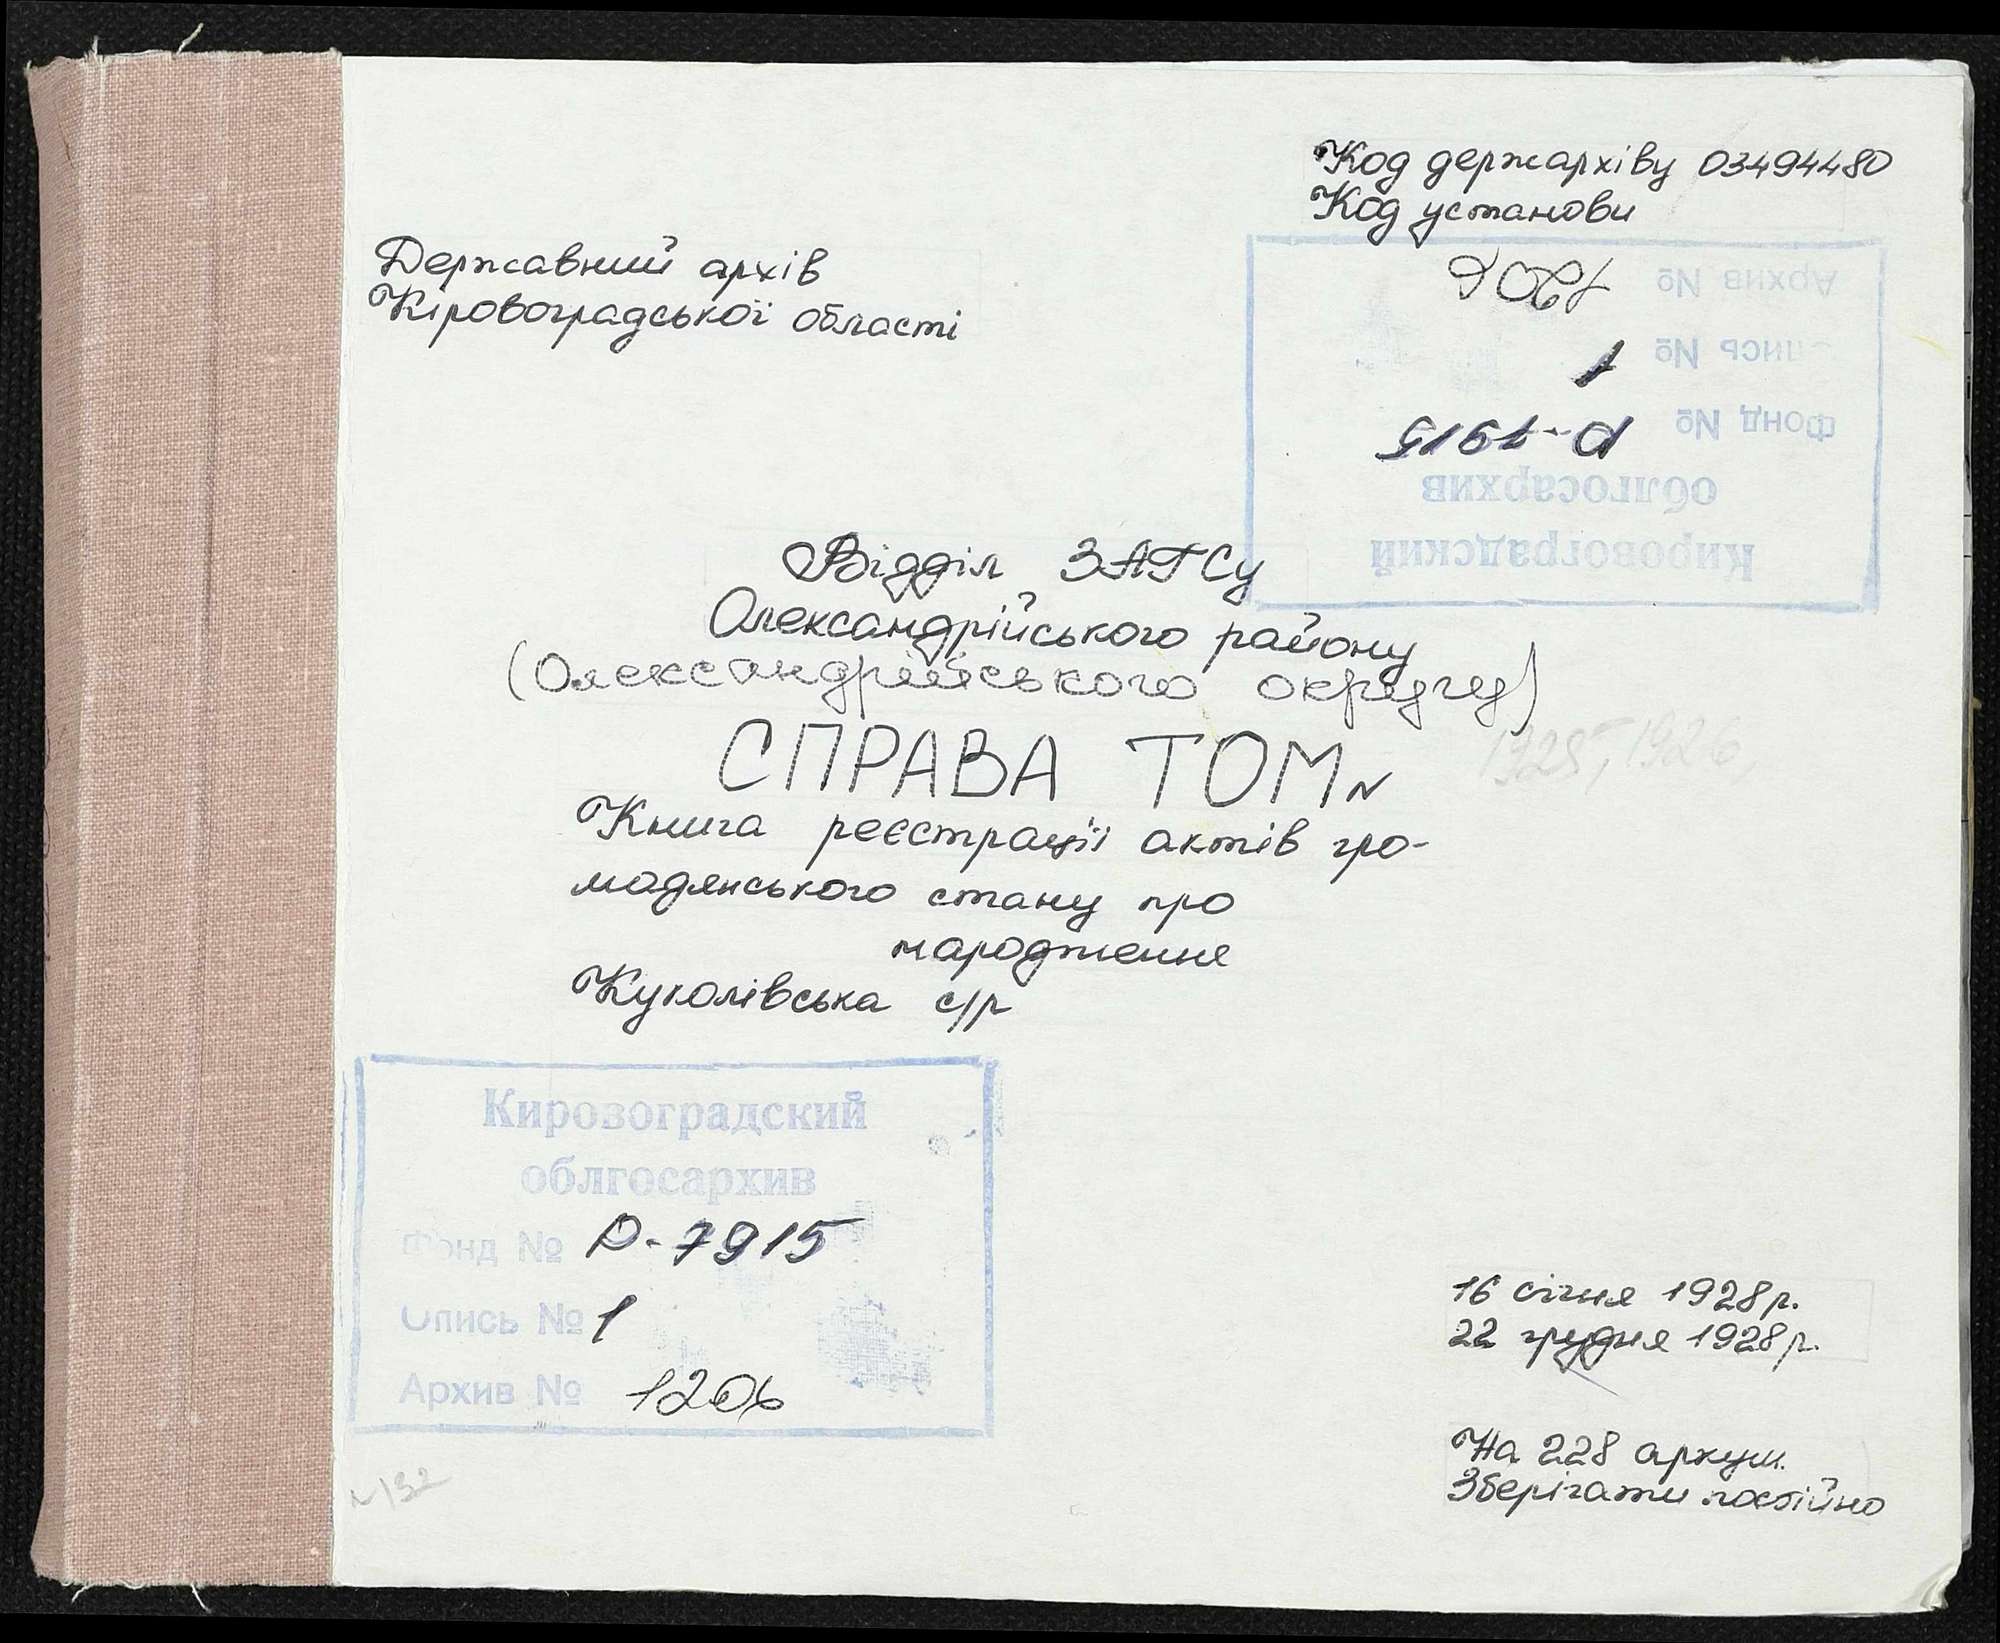 Код держархіву 03494480
Код установи
Державний архів
Кіровоградської області
Кировоградский
облгосархив
Фонд № Р-7915
Опись № 1
Архив № 1206
Відділ ЗАГСу
Олександрійського району
(Олександрійського округу)
СПРАВА ТОМ №
1925, 1926,
Книга реєстрації актів гро-
мадянського стану про
народження
Куколівська с/р
Кировоградский
облгосархив
Фонд № Р-7915
Опись № 1
Архив № 1206
16 січня 1928р.
22 грудня 1928р.
На 228 аркуш.
Зберігати постійно
№132